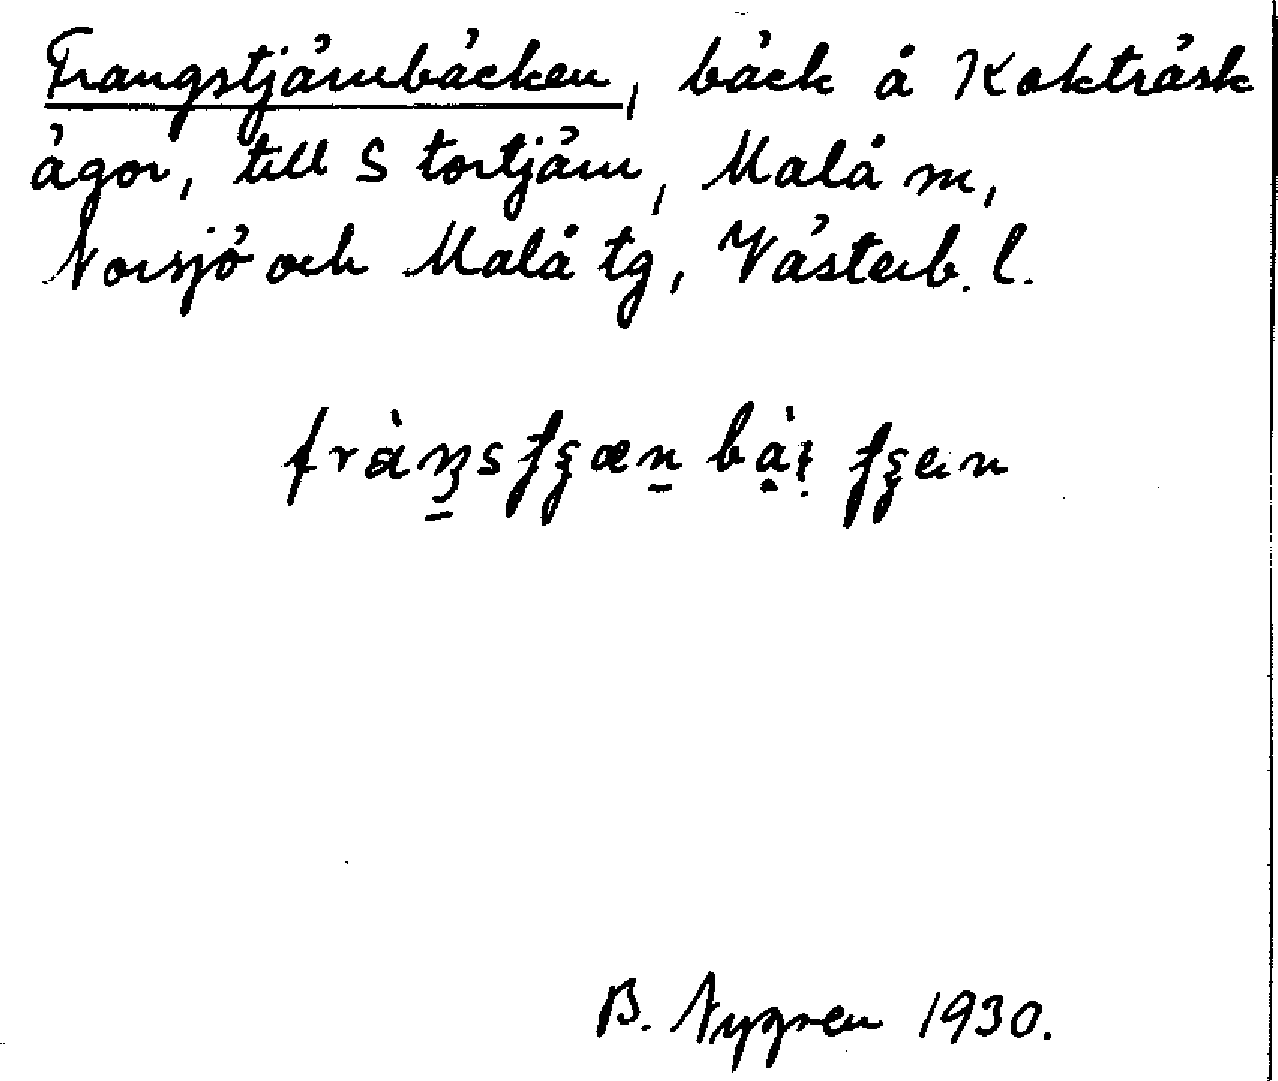 Frangstjärnbäcken, bäck å Kokträsk
ägor, till Stortjärn, Malå sn,
Norsjö och Malå tg, Västerb. l.
B. Nygren 1930.